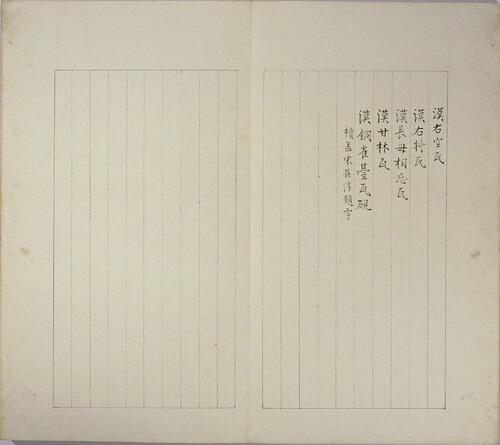 漢右空瓦
漢右將瓦
漢長毋相忘瓦
漢甘林瓦
漢銅雀臺瓦硯
櫝蓋宋葆淳題字